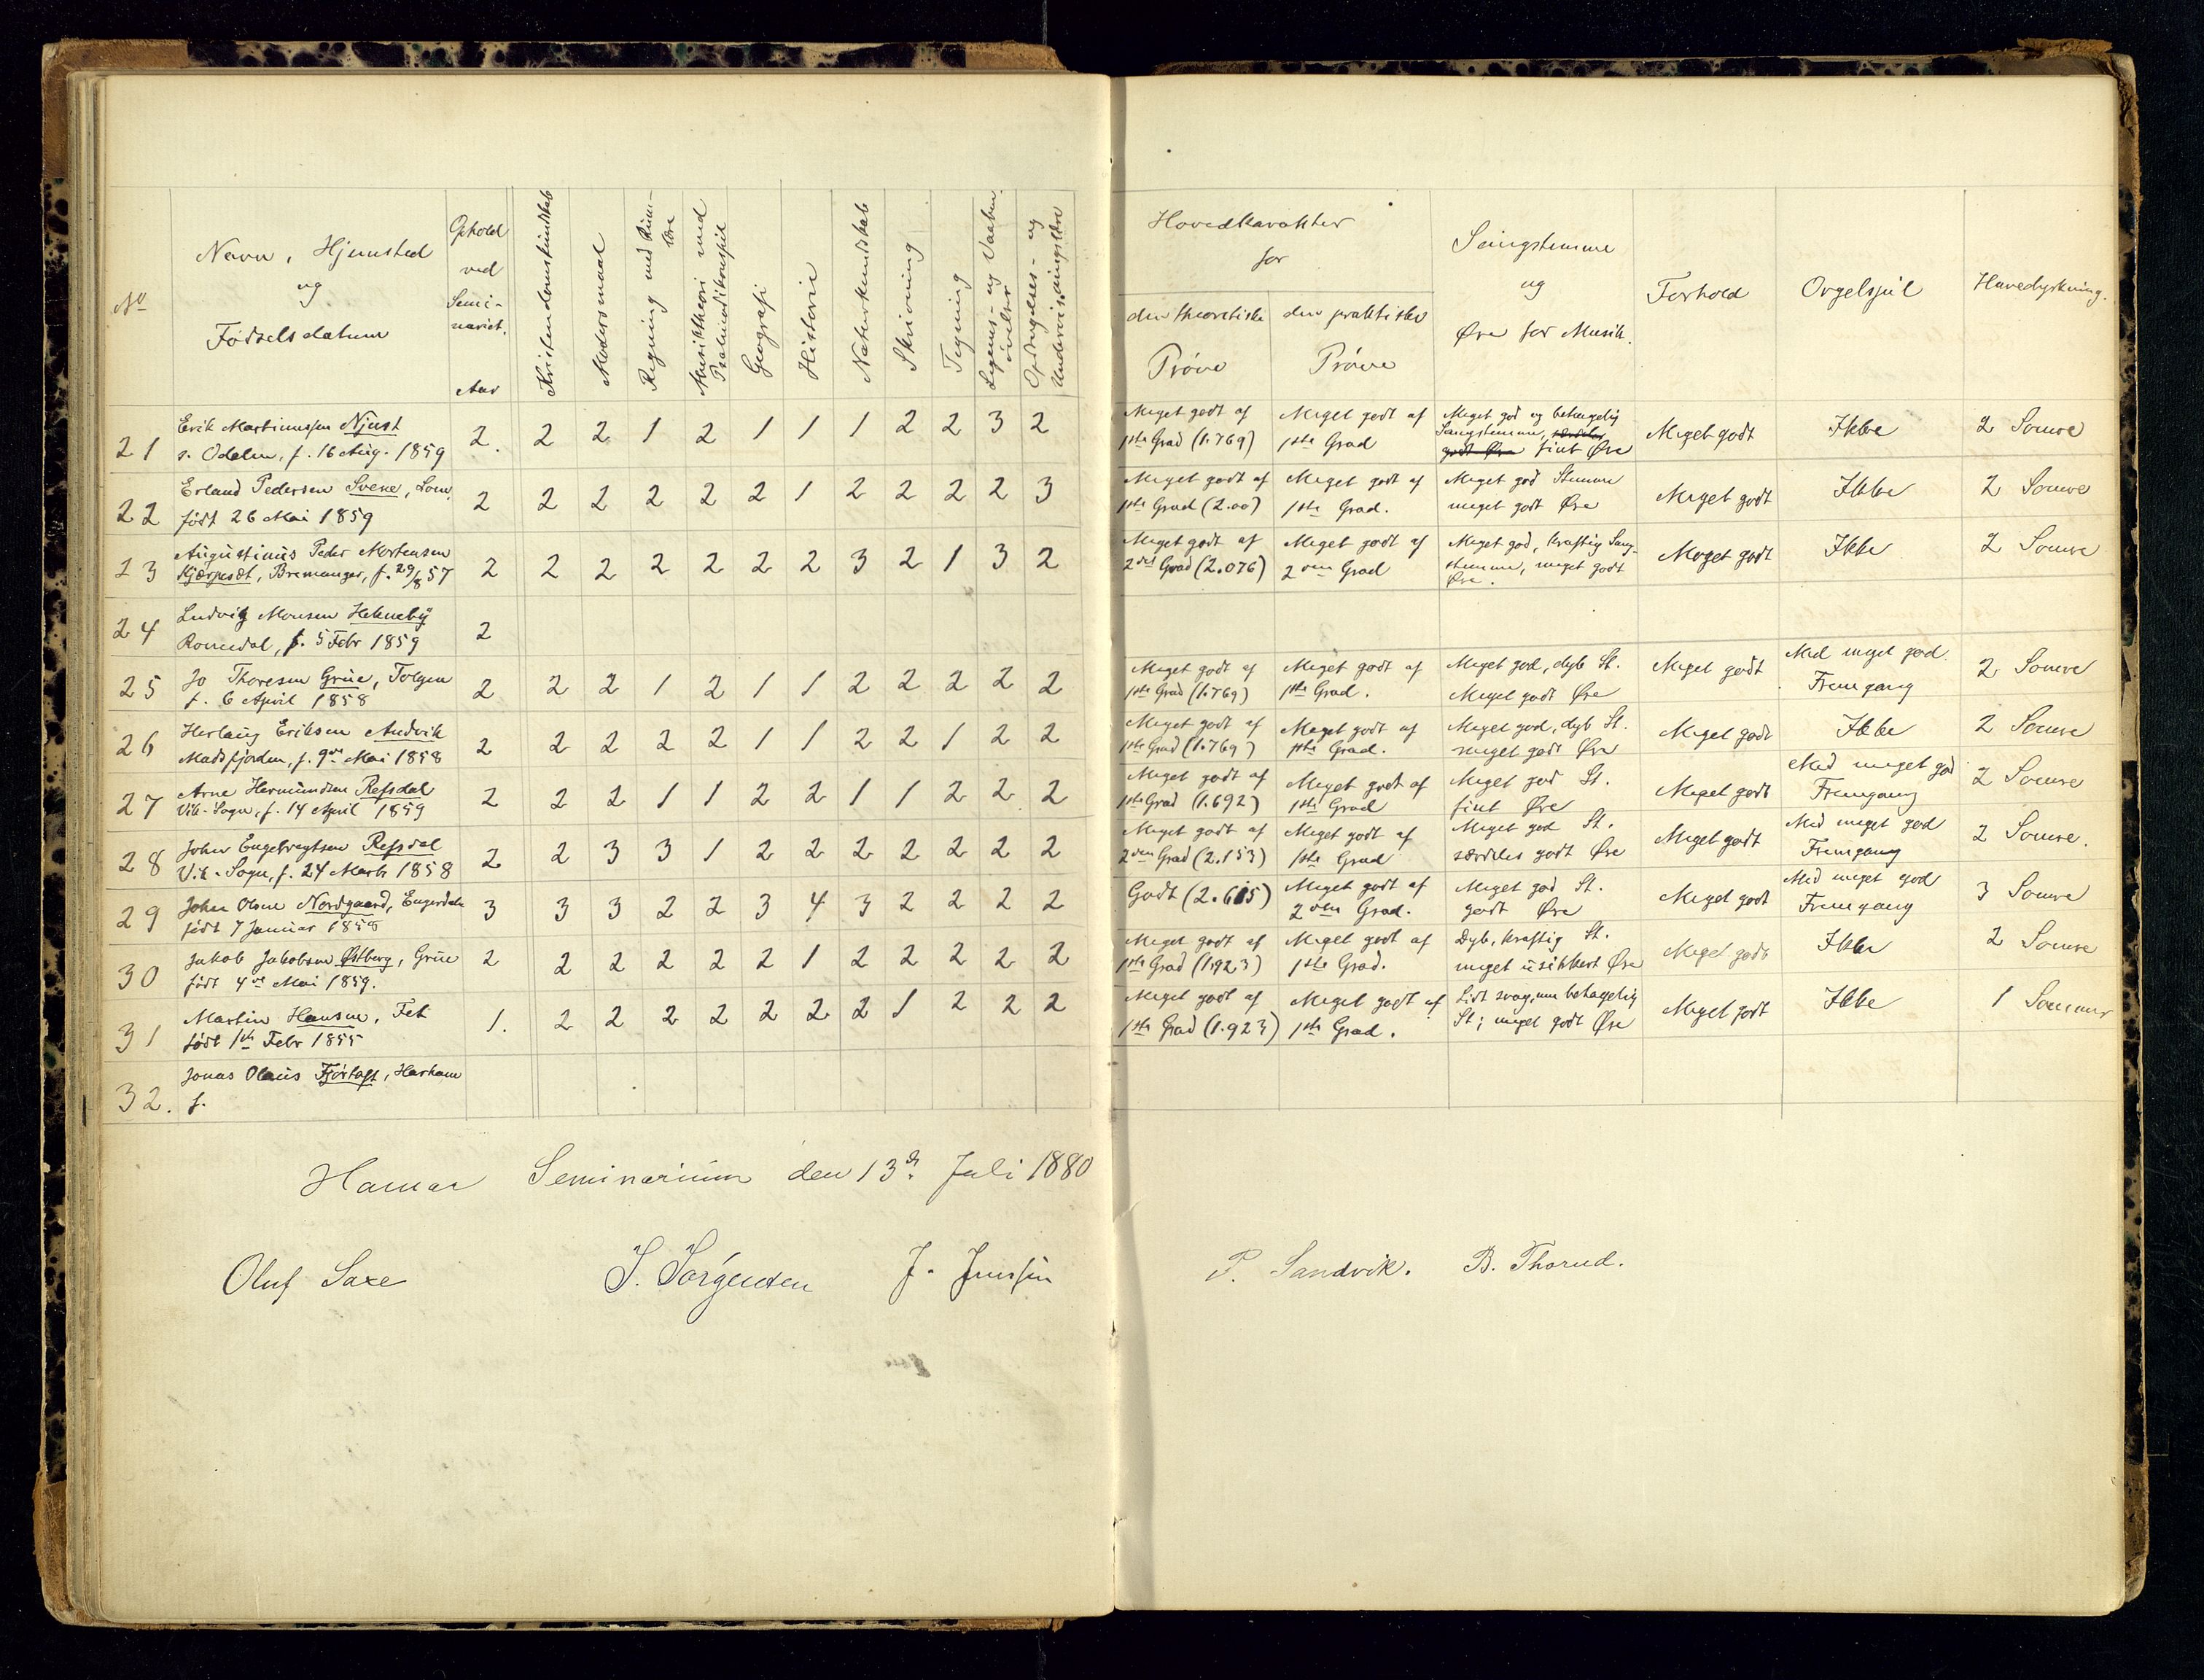 No
Navn, Hjemsted
og
Fødselsdatum
Ophold
ved
Semi-
nariet.
Aar
Kristendomskundskab
Modersmaal
Regning med Rum-
lære
Musiktheori med
Psalmodikonspil
Geografi
Historie
Naturkundskab
Skrivning
Tegning
Legems- og Vaaben
øvelser
Opdragelses- og
Undervisningslære
Hovedkarakter
for
den theoretiske
Prøve
den praktiske
Prøve
Sangstemme
og
Øre for Musik.
Forhold
Orgelspil
Havedyrkning.
21 Erik Martinussen Njust
s. Odalen, f. 16 Aug. 1859
2. 2 2 1 2 1 1 1 2 2 3 2
Meget godt af
1ste Grad (1.769)
Meget godt af
1ste Grad
Meget god og behagelig
Sangstemme, særdeles
godt Øre fint Øre
Meget godt
Ikke
2 Somre
22 Erland Pedersen Svene, Lom,
født 26 Mai 1859
2 2 2 2 2 2 1 2 2 2 2 3
Meget godt af
1ste Grad (2.00)
Meget godt af
1ste Grad.
Meget god Stemme
meget godt Øre
Meget godt
Ikke
2 Somre
23 Augustinus Peder Mortensen
Kjærpesdt, Bremanger, f. 29/8 57
2 2 2 2 2 2 2 3 2 1 3 2
Meget godt af
2den Grad (2.076)
Meget godt af
2den Grad
Meget god, kraftig Sang-
stemme, meget godt
Øre.
Meget godt
Ikke
2 Somre
24 Ludvig Monsen Hekneby
Romedal, f. 5 Febr 1859
2
25 Jo Thoresen Grue, Tolgen
f. 6 April 1858
2 2 2 1 2 1 1 2 2 2 2 2
Meget godt af
1ste Grad (1.769)
Meget godt af
1ste Grad.
Meget god, dyb St.
Meget godt Øre
Meget godt
Med meget god
Fremgang
2 Somre
26 Herlaug Eriksen Andvik
Madsfjorden, f. 9de Mai 1858
2 2 2 2 2 1 1 2 2 1 2 2
Meget godt af
1ste Grad (1.769)
Meget godt af
1ste Grad.
Meget god, dyb St.
meget godt Øre
Meget godt
Ikke
2 Somre
27 Arne Hermundsen Refsdal
Vik-Sogn, f. 14 April 1859
2 2 2 1 1 2 2 1 1 2 2 2
Meget godt af
1ste Grad (1.692)
Meget godt af
1ste Grad
Meget god St.
fint Øre
Meget godt
Med meget god
Fremgang
2 Somre
28 John Engebregtsen Refsdal
Vik-Sogn, f. 24 Marts 1858
2 2 3 3 1 2 2 2 2 2 2 2
Meget godt af
2den Grad (2.153)
Meget godt af
1ste Grad
Meget god St.
særdeles godt Øre
Meget godt
Med meget god
Fremgang
2 Somre.
29 Johan Olsen Nordgaard, Engerdalen
født 7 Januar 1858
3 3 3 2 2 3 4 3 2 2 2 2
Godt (2.615)
Meget godt af
2den Grad.
Meget god St.
godt Øre
Meget godt
Med meget god
Fremgang
3 Somre
30 Jakob Jakobsen Østberg, Grue
født 4de Mai 1859.
2 2 2 2 2 2 1 2 2 2 2 2
Meget godt af
1ste Grad (1.923)
Meget godt af
1ste Grad.
Dyb, kraftig St.
meget usikkert Øre
Meget godt
Ikke
2 Somre
31 Martin Hansen, Fet
født 1ste Febr 1855
1. 2 2 2 2 2 2 2 1 2 2 2
Meget godt af
1ste Grad (1.923)
Meget godt af
1ste Grad.
Lidt svag, men behagelig
St; meget godt Øre
Meget godt
Ikke
1 Sommer
32. Jonas Olaus Fjørtoft, Harham
f.
Hamar Seminarium den 13de Juli 1880
Oluf Saxe S. Sørgensen J. Jenssen P. Sandvik. B. Thorud.